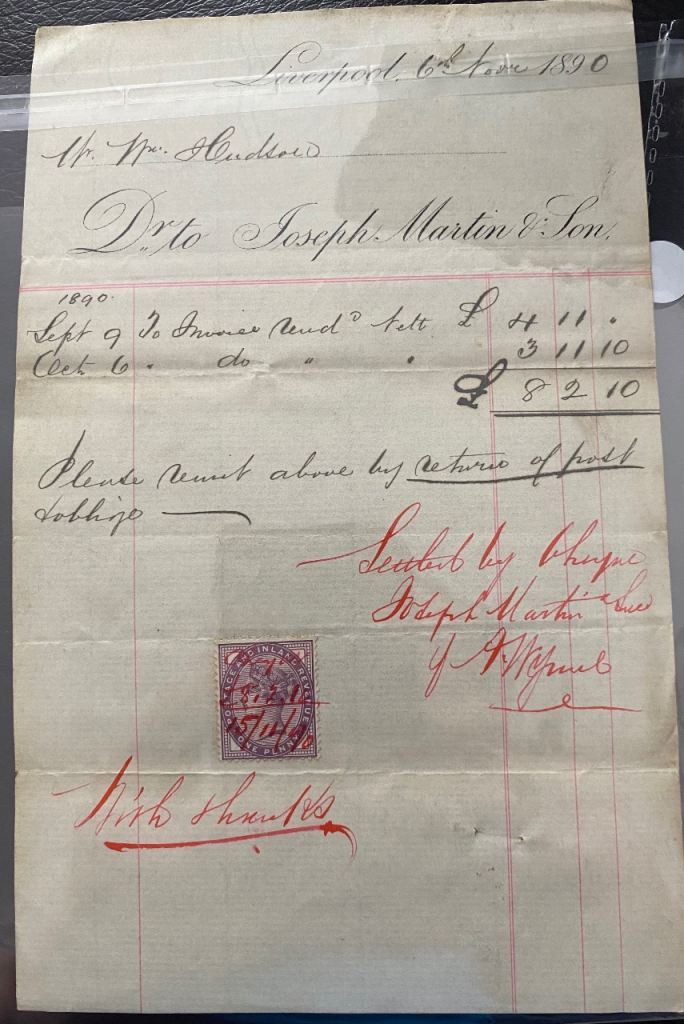 Liverpool, 6th Novr 1890
Mr. Wm. Hudson
Dr. to Joseph Martin & Son.
1890.
Sept 9 To Invoice Rendd Nett £ 4 11 "
Oct. 6 " do " " 3 11 10
£ 8 2 10
Please remit above by return of post
& oblige
Settled by Cheque
Joseph Martin & Son
With thanks
POSTAGE AND INLAND REVENUE
8.2.10
15/11/90
ONE PENNY